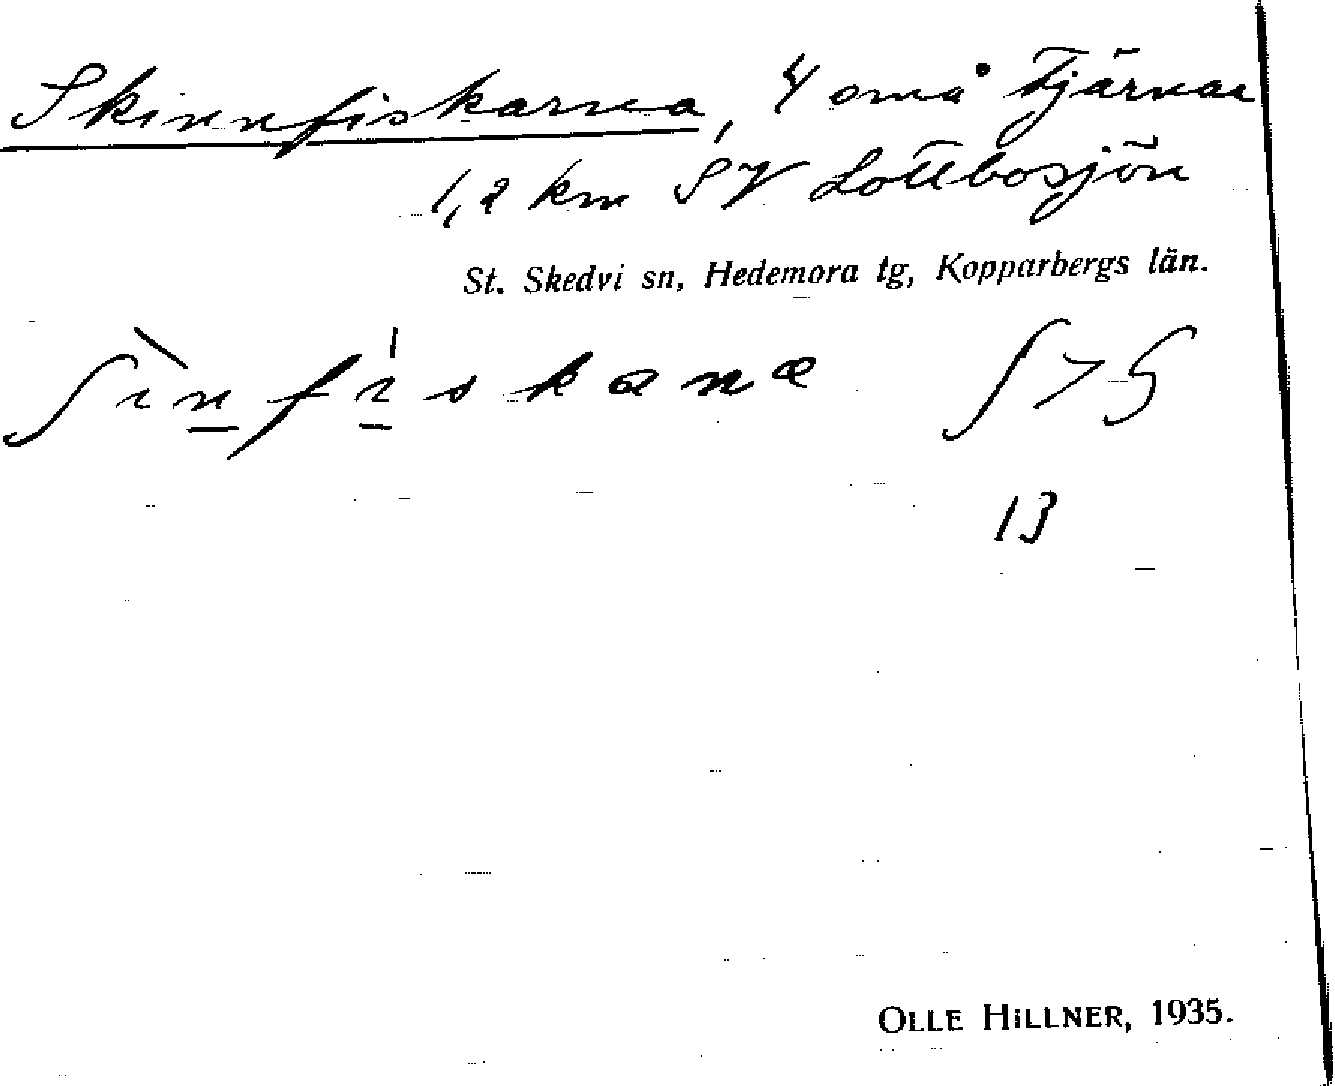 Skinnfiskarna, 4 små tjärnar
1,2 km SV Lottbosjön
St. Skedvi sn, Hedemora tg, Kopparbergs län.
ʃìn̲fi̲skanα ʃ > ʂ
13
OLLE HILLNER, 1935.